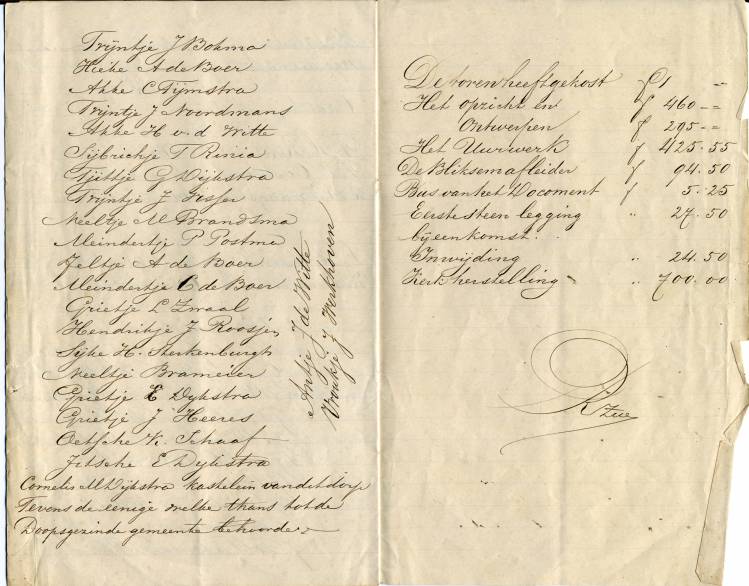 Trijntje J Bokma
Hieke A de Boer
Akke C Tijmstra
Trijntje J Noordmans
Akke H v.d Witte
Sijbrichje T Rinia
Tjittje G Dijkstra
Trijntje J Visser
Neeltje M Brandsma
Meindertje P Postma
Jeltje A de Boer
Meindertje C de Boer
Grietje L Zwaal
Hendrikje J Roosjen
Sijke H. Sterkenburgh
Neeltje Brameier
Grietje E Dijkstra
Grietje J Heeres
Oetsche K. Schaaf
Jitsche E Dijkstra
Cornelis M Dijkstra kastelein van det dorp
Tevens de eenige welke thans tot de
Doopsgezinde gemeente behoorde
Antje J de Witte
Vroukje J Werkhoven
De toren heeft gekost f
Het opzicht en f 460 --
Ontwerpen f 295 --
Het Uurwerk f 425.55
De Bliksemafleider f 94.50
Bus van het Document f 5.25
Eerste steen legging " 27.50
bijeenkomst.
Inwijding " 24.50
Kerkherstelling " 700.00